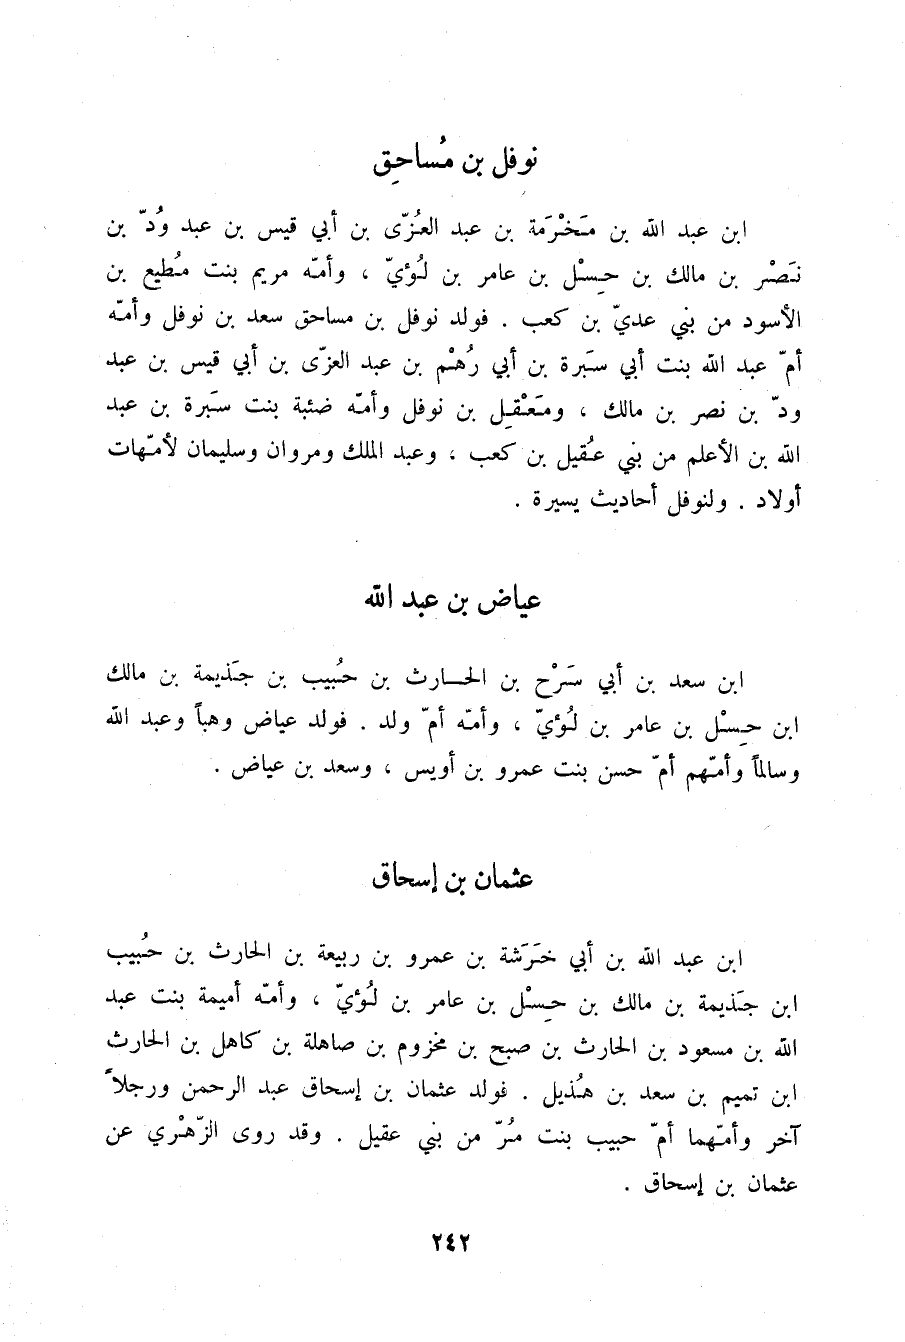 نوفل بن مُساحِق
ابن عبد الله بن مَخْرَمة بن عبد العُزّى بن أبي قيس بن عبد وُدّ بن
نَصْر بن مالك بن حِسْل بن عامر بن لُؤيّ ، وأمّه مريم بنت مُطيع بن
الأسود من بني عديّ بن كعب . فولد نوفل بن مساحق سعد بن نوفل وأمّه
أمّ عبد الله بنت أبي سَبرة بن أبي رُهْم بن عبد العزّى بن أبي قيس بن عبد
ودّ بن نصر بن مالك ، ومَعْقِل بن نوفل وأمّه ضئبة بنت سَبرة بن عبد
الله بن الأعلم من بني عُقيل بن كعب ، وعبد الملك ومروان وسليمان لأمّهات
أولاد . ولنوفل أحاديث يسيرة .
عياض بن عبد الله
ابن سعد بن أبي سَرْح بن الحارث بن حُبيب بن جَذيمة بن مالك
ابن حِسْل بن عامر بن لُؤيّ ، وأمّه أمّ ولد . فولد عياض وهباً وعبد الله
وسالماً وأمّهم أمّ حسن بنت عمرو بن أويس ، وسعد بن عياض .
عثمان بن إسحاق
ابن عبد الله بن أبي خَرَشة بن عمرو بن ربيعة بن الحارث بن حُبيب
ابن جَذيمة بن مالك بن حِسْل بن عامر بن لُؤيّ ، وأمّه أميمة بنت عبد
الله بن مسعود بن الحارث بن صبح بن مخزوم بن صاهلة بن كاهل بن الحارث
ابن تميم بن سعد بن هُذيل . فولد عثمان بن إسحاق عبد الرحمن ورجلاً
آخر وأمّهما أمّ حبيب بنت مُرّ من بني عقيل . وقد روى الزّهْري عن
عثمان بن إسحاق .
٢٤٢